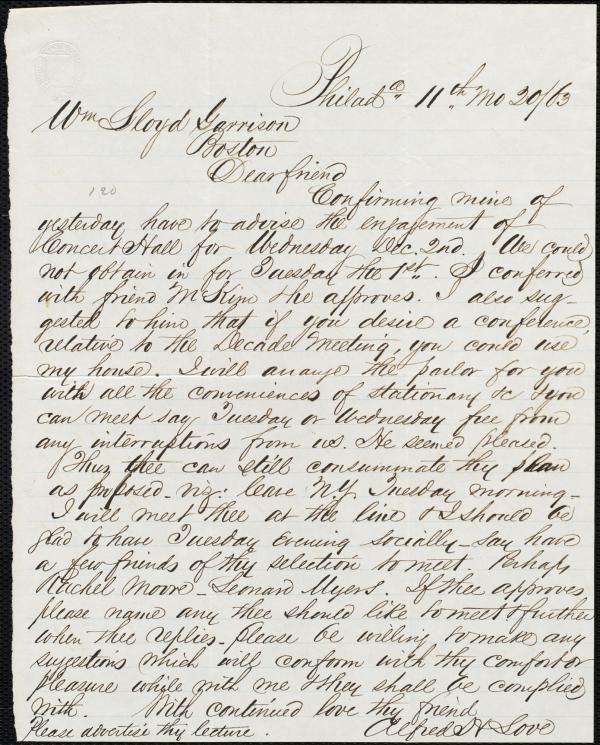 Philad.a 11th Mo 20/63
Wm Lloyd Garrison
Boston
Dear friend
120
Confirming mine of
yesterday have to advise the engagement of
Concert Hall for Wednesday Dec. 2nd. We could
not obtain in for Tuesday the 1st. I conferred
with friend McKim & he approves. I also sug-
gested to him, that if you desire a conference,
relative to the Decade Meeting, you could use
my house. I will arrange the parlor for you
with all the conveniences of stationary &c & you
can meet say Tuesday or Wednesday free from
any interruptions from us. He seemed pleased.
Thus thee can still consummate thy plan
as proposed. viz: leave N.Y. Tuesday morning-
I will meet thee at the line & I should be
glad to have Tuesday Evening socially - say have
a few friends of thy selection to meet. Perhaps
Rachel Moore - Leonard Myers. If thee approves,
please name any thee should like to meet & further
when thee replies - please be willing to make any
sugestions which will conform with thy comfort or
pleasure while with me & they shall be complied
with. With continued love thy friend
Please advertise thy lecture. Alfred H Love